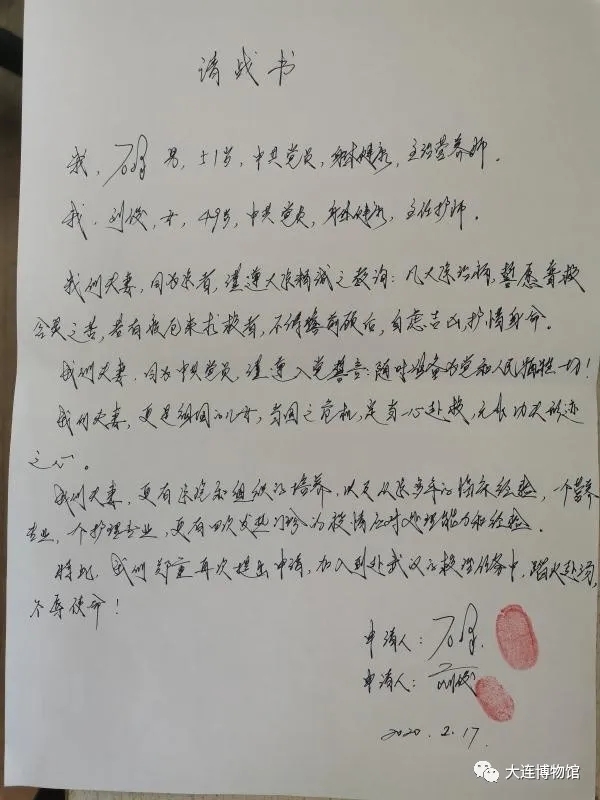 请战书
我，石磊 男，51岁，中共党员，身体健康，主治营养师。
我，刘俊，女，49岁，中共党员，身体健康，主任护师。
我们夫妻，同为医者，谨遵大医精诚之教诲：凡大医治病，誓愿普救
含灵之苦，若有疾厄来求救者，不得瞻前顾后，自虑吉凶，护惜身命。
我们夫妻，同为中共党员，谨遵入党誓言：随时准备为党和人民牺牲一切！
我们夫妻，更是祖国的儿女，当国之危机，定当一心赴救，无作功夫形迹
之心。
我们夫妻，更有医院和组织的培养，以及从医多年的临床经验，一个营养
专业，一个护理专业，更有四次发热门诊的疫情应对处理能力和经验。
特此，我们郑重再次提出申请，加入到赴武汉的救治任务中，蹈火赴汤，
不辱使命！
申请人：
申请人：刘俊
2020.2.17.
大连博物馆